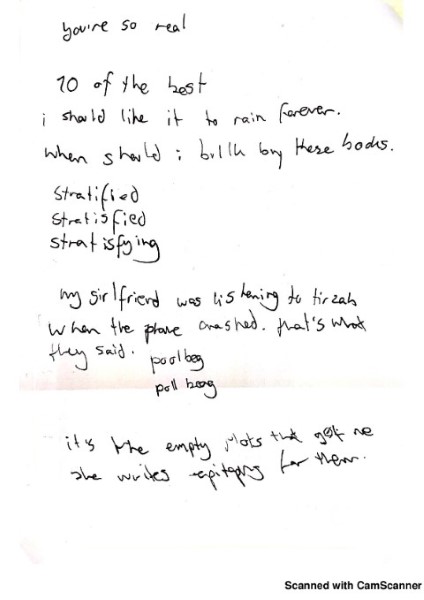 you're so real
10 of the best
i should like it to rain forever.
when should i bulk buy these books.
stratified
stratisfied
stratisfying
my girlfriend was listening to tirzah
when the plane crashed. that's what
they said. poolbeg
poll beg
it's the empty plots that get me
she writes epitaphs for them.
Scanned with CamScanner